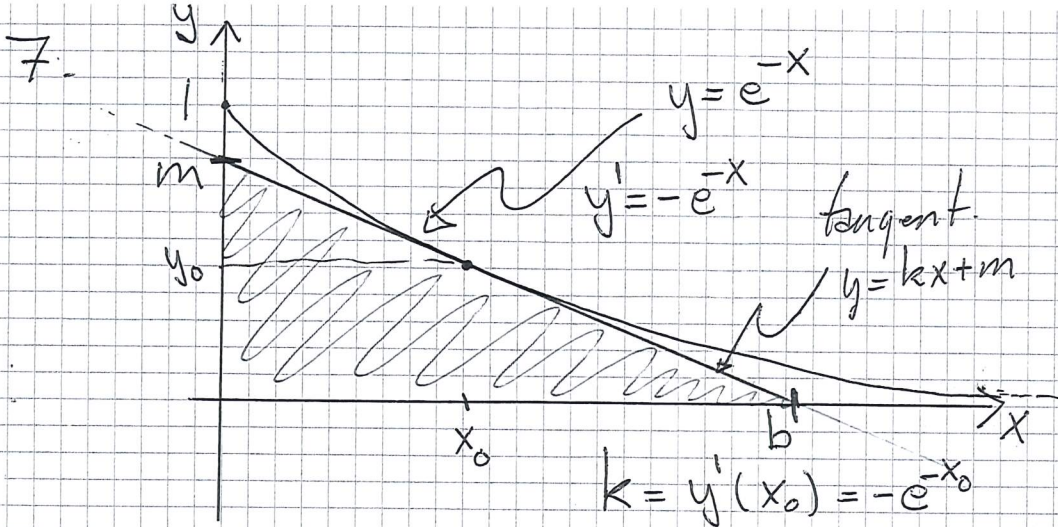 7.
y
1
y = e^{-x}
m
y' = -e^{-x}
tangent.
y = kx+m
y_0
x_0
b
x
k = y'(x_0) = -e^{-x_0}